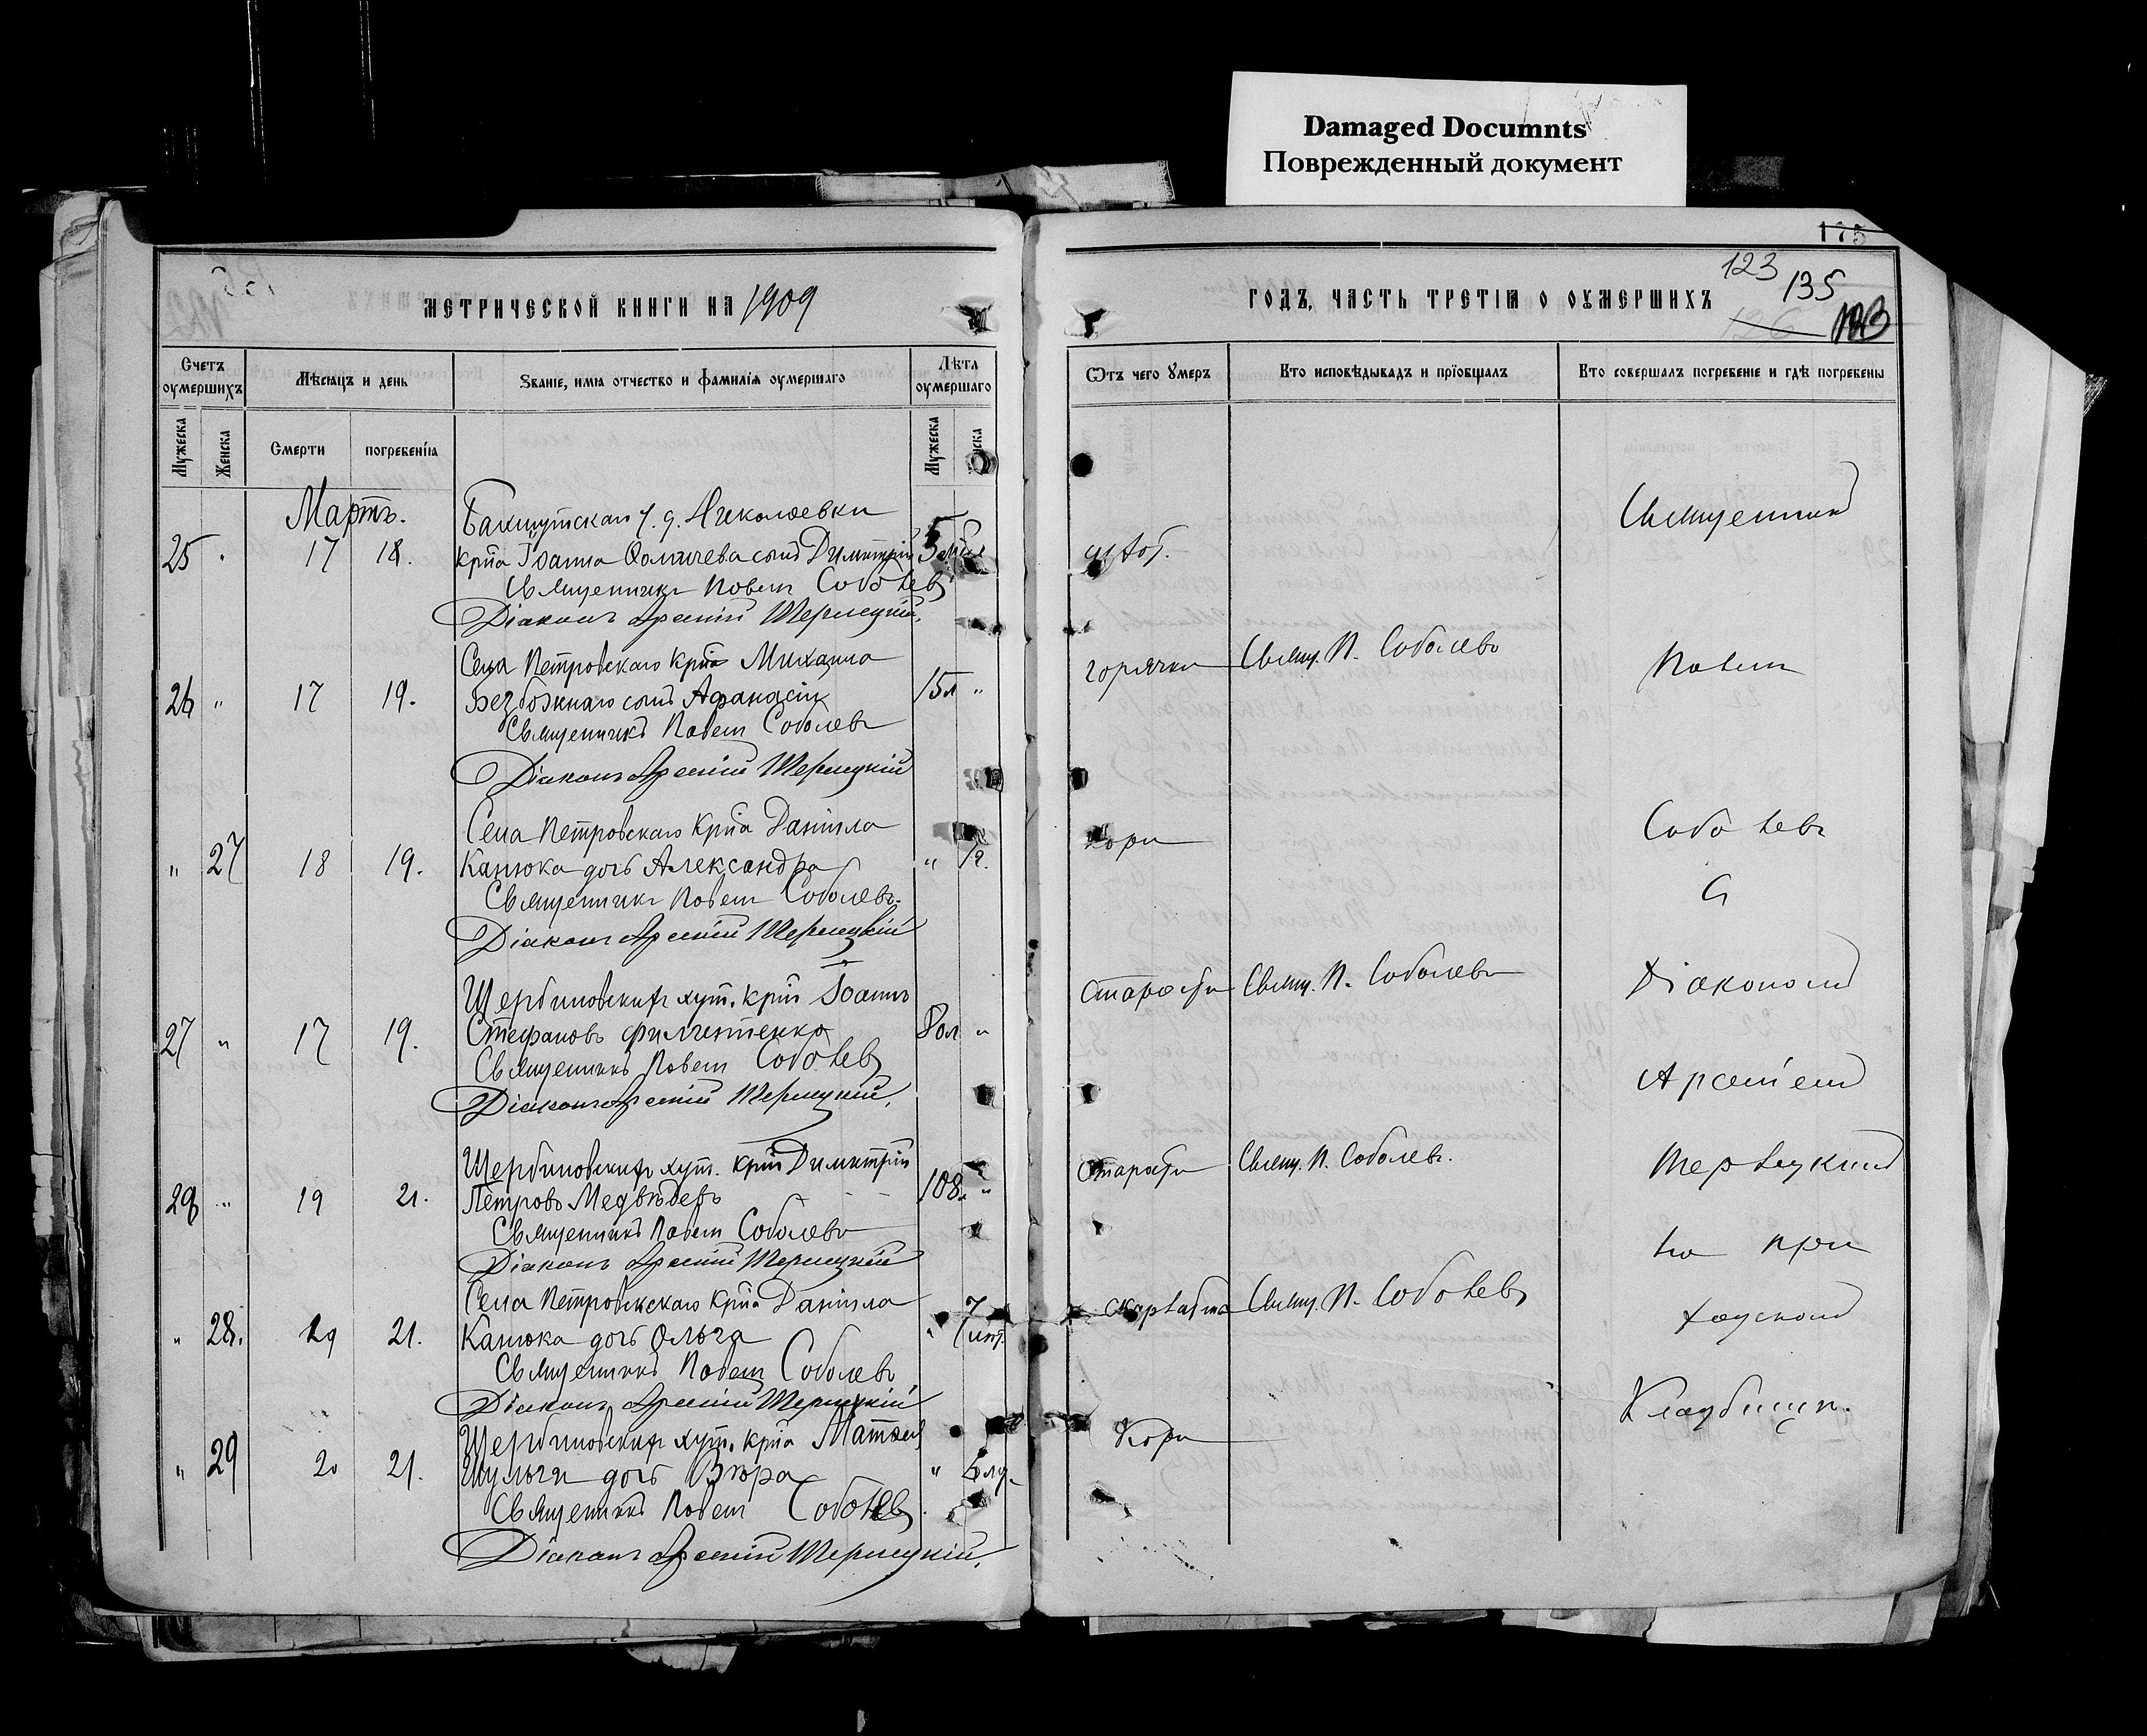 Damaged Documnts
Поврежденный документ
175
123
135
126
123
МЕТРИЧЕСКОЙ КНИГИ НА 1909
ГОДЪ, ЧАСТЬ ТРЕТІЯ О ОУМЕРШИХЪ
Счетъ оумершихъ
Мѣсяцъ и день
Званіе, имя отчество и фамилія оумершаго
Лѣта оумершаго
Отъ чего умеръ
Кто исповѣдывалъ и пріобщалъ
Кто совершалъ погребеніе и гдѣ погребены
Мужеска
Женска
Смерти
погребенія
Мужеска
Мартъ.
Николаевки
25 " 17 18. Кр̃на Іоанна сынъ Димитрій 5
Священникъ Павелъ Соболевъ
Діаконъ Арсеній Терлецкій.
Села Петровскаго Кр̃на Михаила
горячки Свящ. П. Соболевъ
26 " 17 19. Безбожнаго сынъ Афанасій 15 л "
Священникъ Павелъ Соболевъ
Діаконъ Арсеній Терлецкій
Села Петровскаго Кр̃на Даніила
кори
" 27 18 19. Канюка дочь Александра " 1 г.
Священникъ Павелъ Соболевъ.
Діаконъ Арсеній Терлецкій
Щербиновскихъ хут. кр̃нъ Іоаннъ
старости Свящ. П. Соболевъ
27 " 17 19. Стефановъ Филипенко 80 л "
Священникъ Павелъ Соболевъ
Діаконъ Арсеній Терлецкій.
Щербиновскихъ хут. кр̃нъ Димитрій
старости Свящ. П. Соболевъ.
28 " 19 21. Петровъ Медвѣдевъ 108 "
Священникъ Павелъ Соболевъ
Діаконъ Арсеній Терлецкій
Села Петровскаго Кр̃на Даніила
скарлатина Свящ. П. Соболевъ
" 28. 19 21. Канюка дочь Ольга " 7 лѣт.
Священникъ Павелъ Соболевъ
Діаконъ Арсеній Терлецкій
Щербиновскихъ хут. кр̃на Матѳея
Кори
" 29 20 21. Шульги дочь Вѣра "
Священникъ Павелъ Соболевъ.
Діаконъ Арсеній Терлецкій.
Священникъ
Павелъ
Соболевъ
съ
Діакономъ
Арсеніемъ
Терлецкимъ
на при
ходскомъ
Кладбищѣ.